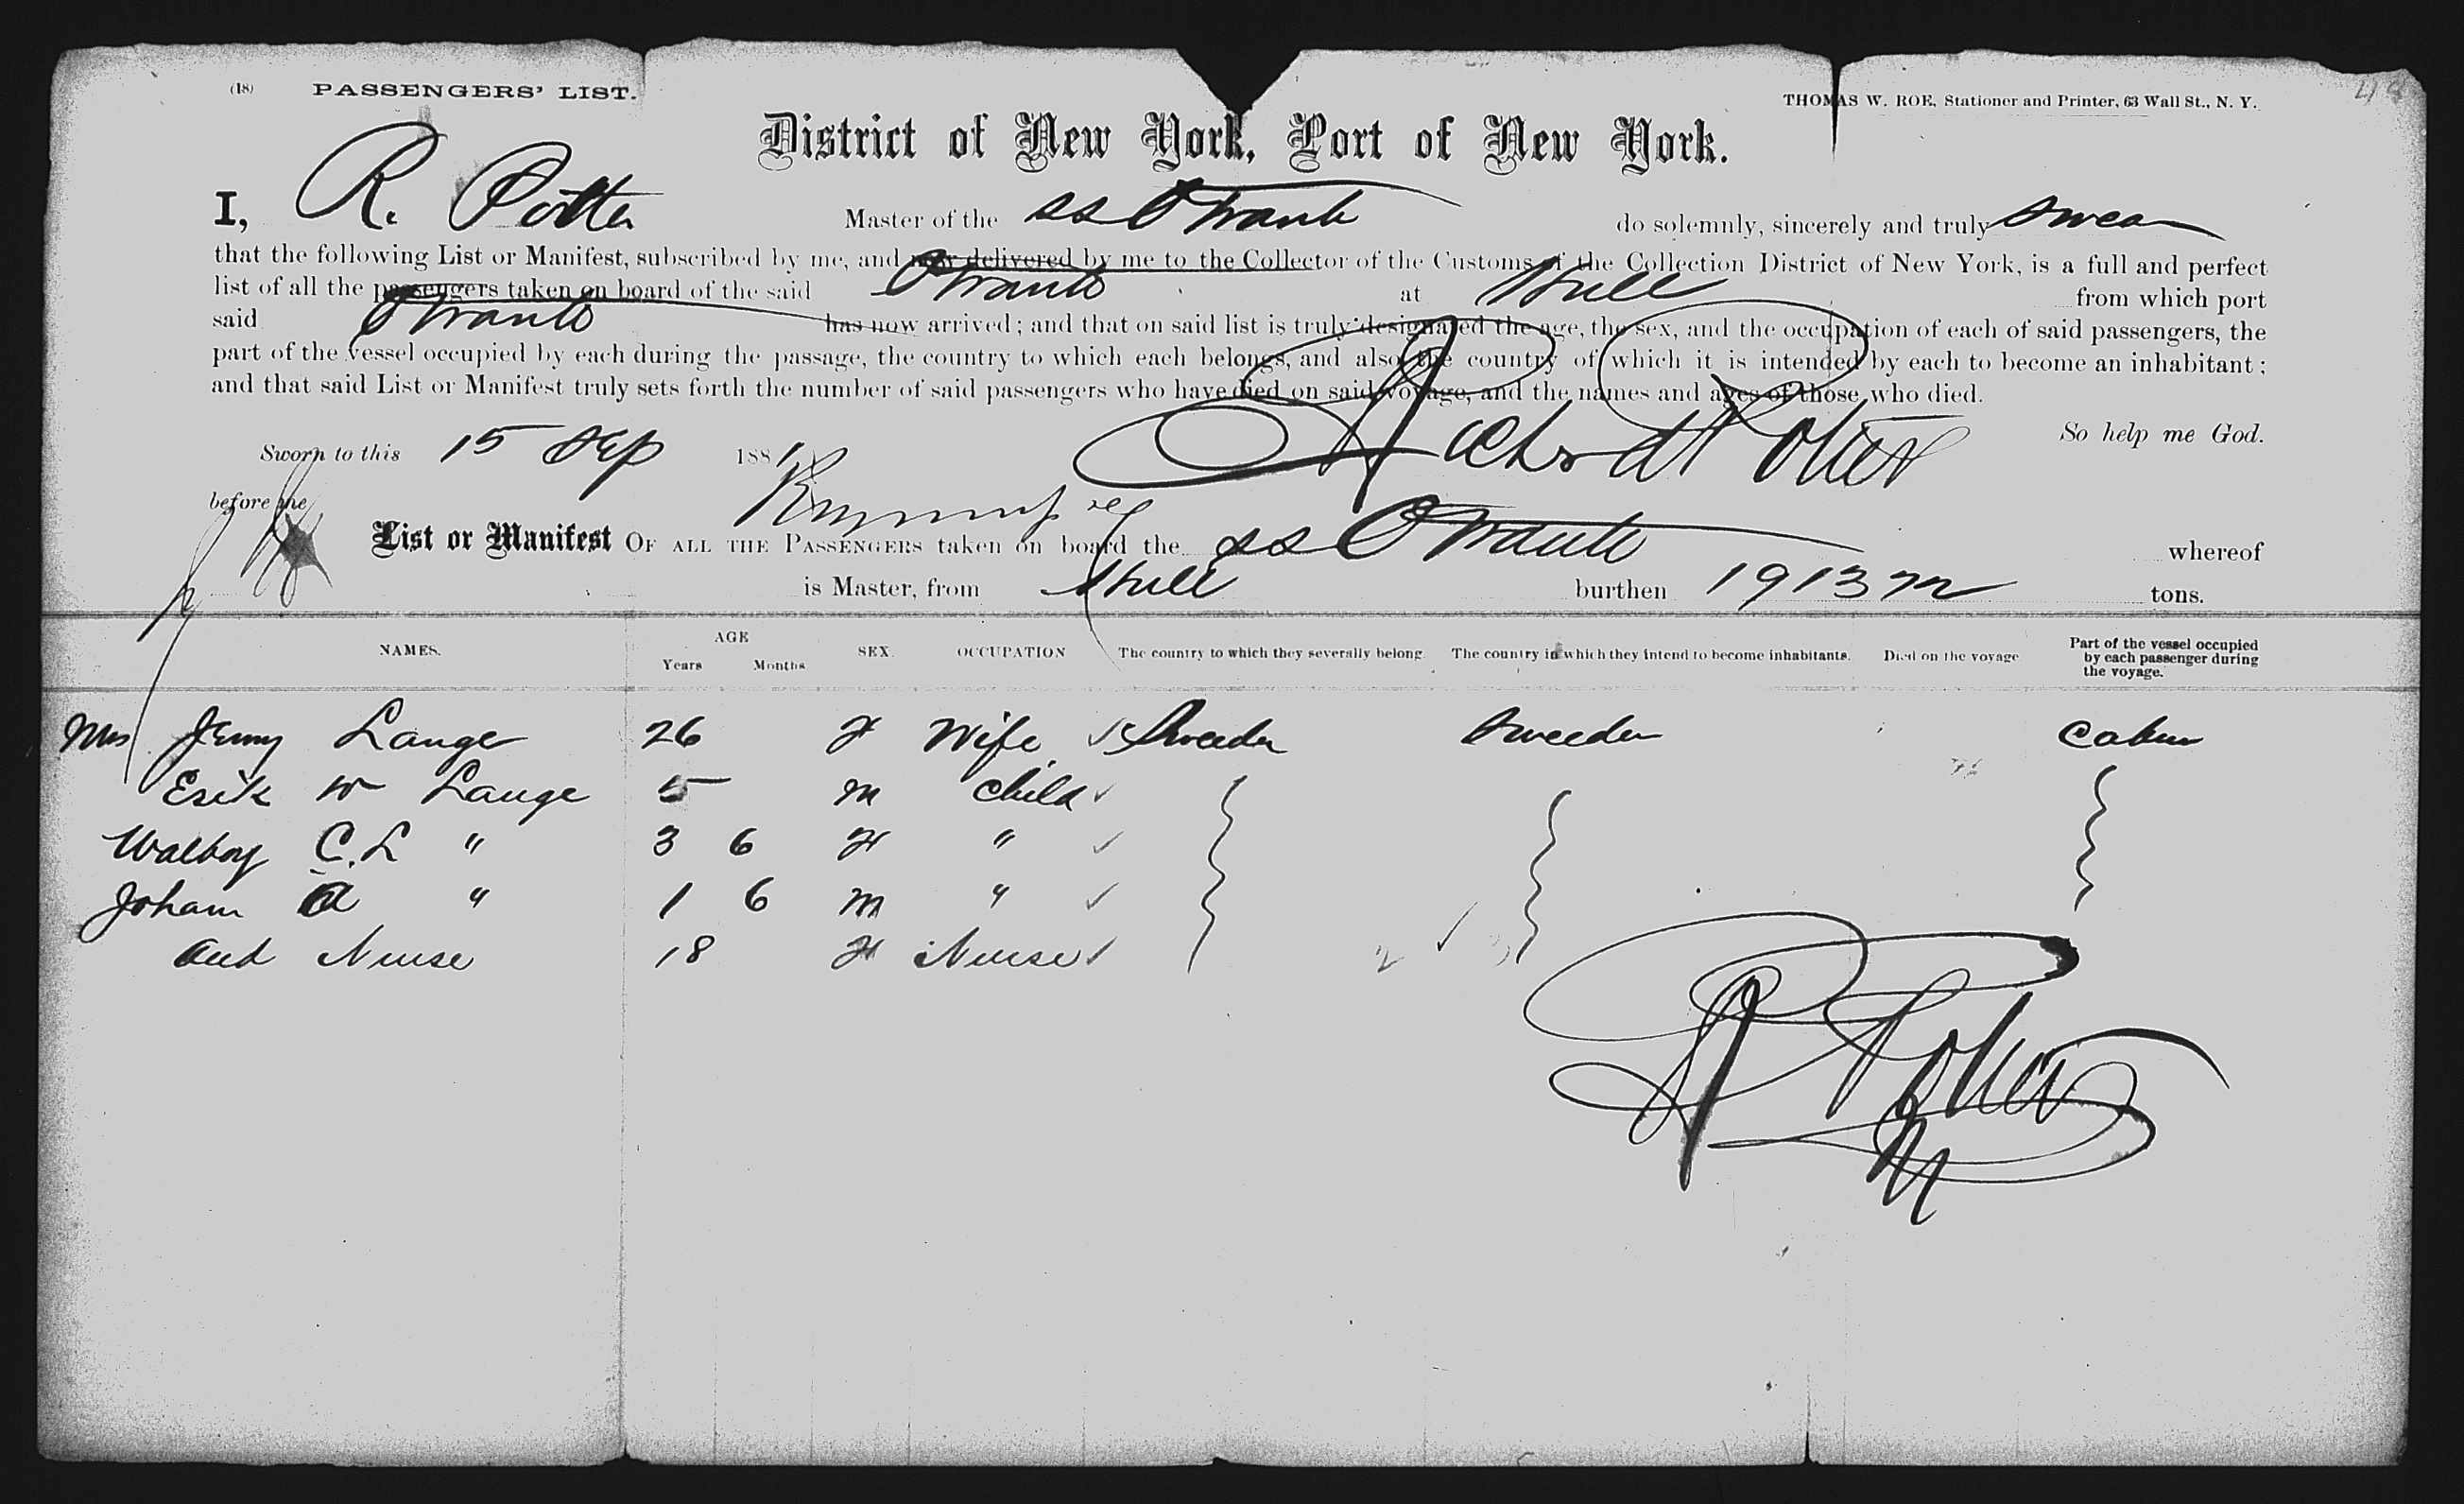 (18) PASSENGERS' LIST.
THOMAS W. ROE, Stationer and Printer, 63 Wall St., N. Y.
48
District of New York, Port of New York.
I, R. Potter Master of the SS Otranto do solemnly, sincerely and truly swear
that the following List or Manifest, subscribed by me, and now delivered by me to the Collector of the Customs of the Collection District of New York, is a full and perfect
list of all the passengers taken on board of the said Otranto at Hull from which port
said Otranto has now arrived; and that on said list is truly designated the age, the sex, and the occupation of each of said passengers, the
part of the vessel occupied by each during the passage, the country to which each belongs, and also the country of which it is intended by each to become an inhabitant;
and that said List or Manifest truly sets forth the number of said passengers who have died on said voyage, and the names and ages of those who died.
So help me God.
Sworn to this 15 Sep 1881
Richard Potter
before me
List or Manifest OF ALL THE PASSENGERS taken on board the SS Otranto whereof
is Master, from Hull burthen 1913 tons.
NAMES. AGE Years Months SEX. OCCUPATION The country to which they severally belong. The country in which they intend to become inhabitants. Died on the voyage Part of the vessel occupied by each passenger during the voyage.
Mrs Jenny Lange 26 F Wife Sweeden Sweeden Cabin
Erik W Lange 5 M Child
Walboy C. L " 3 6 F "
Joham A " 1 6 M "
and Nurse 18 F Nurse
R Potter